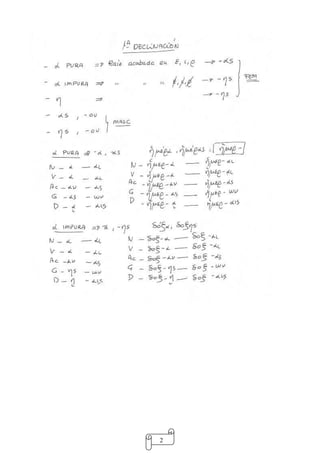 1ª DECLINACIÓN
- α PURA ⇒ Raíz acabada en ε, ι, ρ → -ας
- α IMPURA ⇒ " " " ε̸, ι̸, ρ̸ → -ης FEM
- η ⇒ → -ης
- ας, -ου
- ης, -ου MASC
α PURA -α, ας ἡμέρα, ἡμέρας: ἡμερ-
N - α — αι N - ἡμερ-α — ἡμερ-αι
V - α — αι V - ἡμερ-α — ἡμερ-αι
Ac - αν — ας Ac - ἡμερ-αν — ἡμερ-ας
G - ας — ων G - ἡμερ-ας — ἡμερ-ων
D - ᾳ — αις D - ἡμερ-ᾳ — ἡμερ-αις
α IMPURA ⇒ α, -ης δόξα, δόξης
N - α — αι N - δοξ-α — δοξ-αι
V - α — αι V - δοξ-α — δοξ-αι
Ac - αν — ας Ac - δοξ-αν — δοξ-ας
G - ης — ων G - δοξ-ης — δοξ-ων
D - ῃ — αις D - δοξ-ῃ — δοξ-αις
2